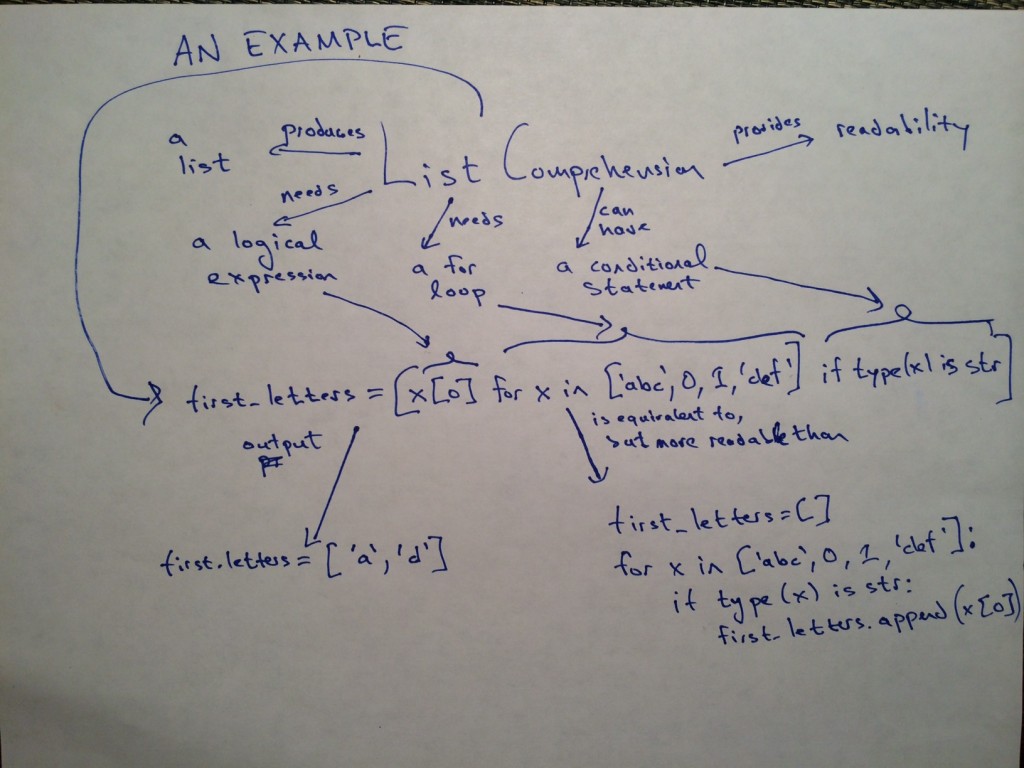 AN EXAMPLE
a
list
produces
List Comprehension
provides
readability
needs
a logical
expression
needs
a for
loop
can
have
a conditional
statement
first_letters = [x[0] for x in ['abc', 0, 1, 'def'] if type(x) is str]
output
is equivalent to,
but more readable than
first.letters = ['a', 'd']
first_letters = []
for x in ['abc', 0, 1, 'def']:
if type(x) is str:
first_letters.append(x[0])